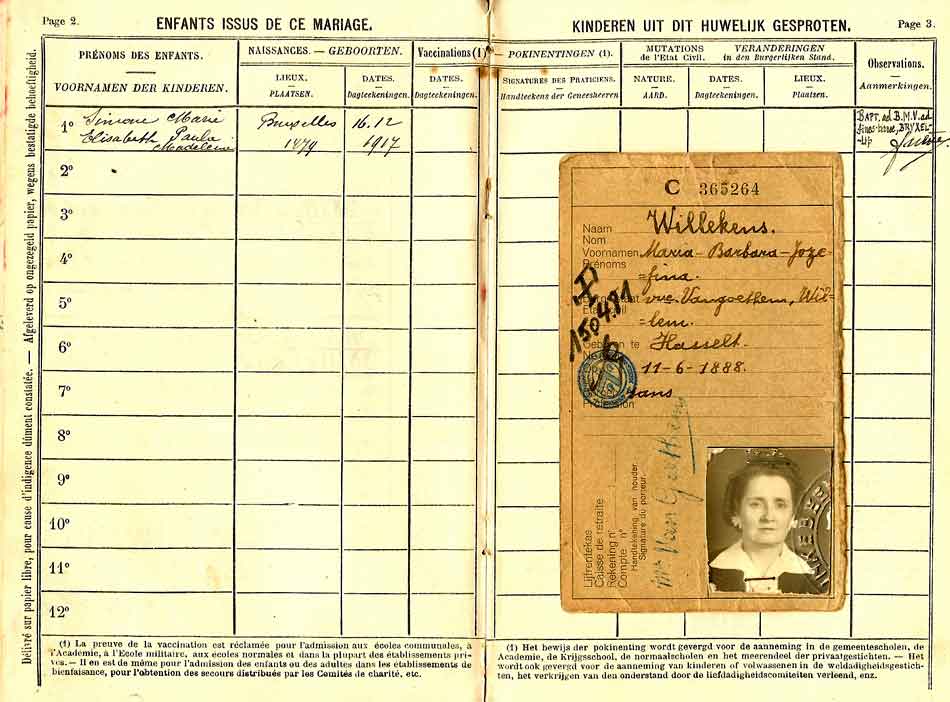 Page 2.
ENFANTS ISSUS DE CE MARIAGE.
KINDEREN UIT DIT HUWELIJK GESPROTEN.
Page 3.
PRÉNOMS DES ENFANTS.
VOORNAMEN DER KINDEREN.
NAISSANCES. — GEBOORTEN.
LIEUX.
PLAATSEN.
DATES.
Dagteekeningen.
Vaccinations (1)
DATES.
Dagteekeningen.
— POKINENTINGEN (1).
SIGNATURES DES PRATICIENS.
Handteekens der Geneesheeren
MUTATIONS
de l'Etat Civil.
VERANDERINGEN
in den Burgerlijken Stand.
NATURE.
AARD.
DATES.
Dagteekeningen.
LIEUX.
Plaatsen.
Observations.
Aanmerkingen.
1º Simone Marie Bruxelles 16.12
Elisabeth Paula 1479 1917
Madeleine
BAPT. ad B.M.V. ad
2º
3º
4º
5º
6º
7º
8º
9º
10º
11º
12º
Délivré sur papier libre, pour cause d'indigence dûment constatée. — Afgeleverd op ongezegeld papier, wegens bestatigde behoeftigheid.
C 365264
Naam
Nom
Willekens.
Voornamen
Prénoms
Maria - Barbara - Joze=
=fina.
vve. Vangoethem, Wil=
=lem.
Geboren te Hasselt.
11-6-1888.
Profession
Lijfrentekas
Caisse de retraite
Rekening nʳ
Compte nº
Handteekening van houder.
Signature du porteur.
Van Goethem
(1) La preuve de la vaccination est réclamée pour l'admission aux écoles communales, à
l'Académie, à l'Ecole militaire, aux écoles normales et dans la plupart des établissements pri-
vés. — Il en est de même pour l'admission des enfants ou des adultes dans les établissements de
bienfaisance, pour l'obtention des secours distribués par les Comités de charité, etc.
(1) Het bewijs der pokinenting wordt gevergd voor de aanneming in de gemeentescholen, de
Academie, de Krijgsschool, de normaalscholen en het meerendeel der privaatgestichten. — Het
wordt ook gevergd voor de aanneming van kinderen of volwassenen in de weldadigheidsgestich-
ten, het verkrijgen van den onderstand door de liefdadigheidscomiteiten verleend, enz.